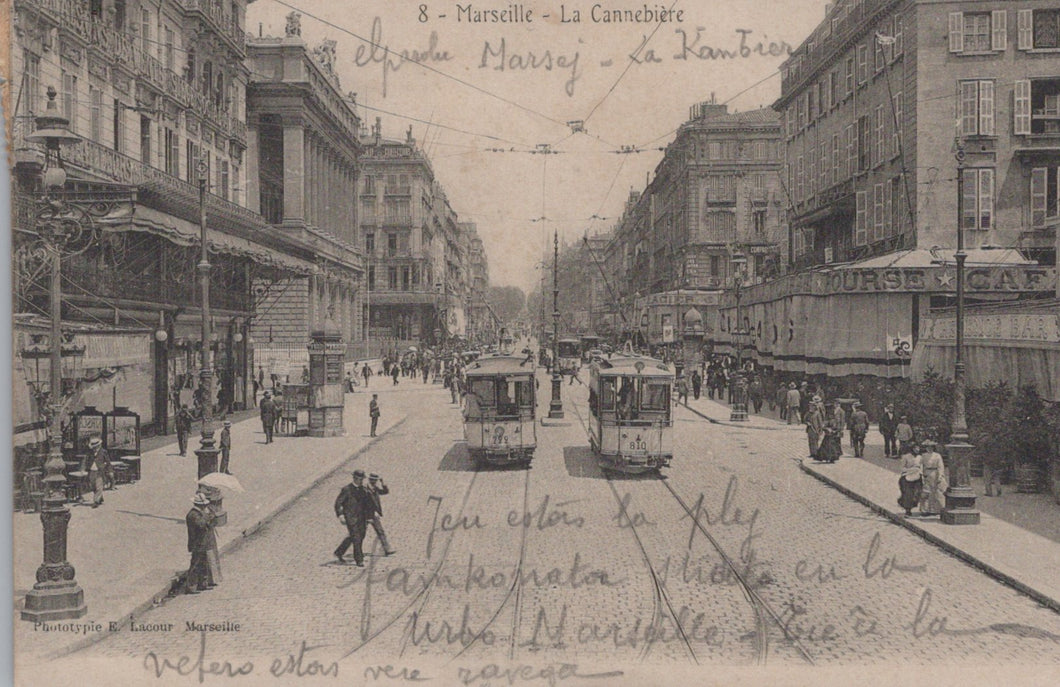 8 - Marseille - La Cannebière
Marsej - La Kanbier
OURSE ★ CAF
810
Jen estas la plej
famkonata strato en la
urbo Marseille - Tie ĉi la
vetero estas vere ravega
Phototypie E. Lacour Marseille